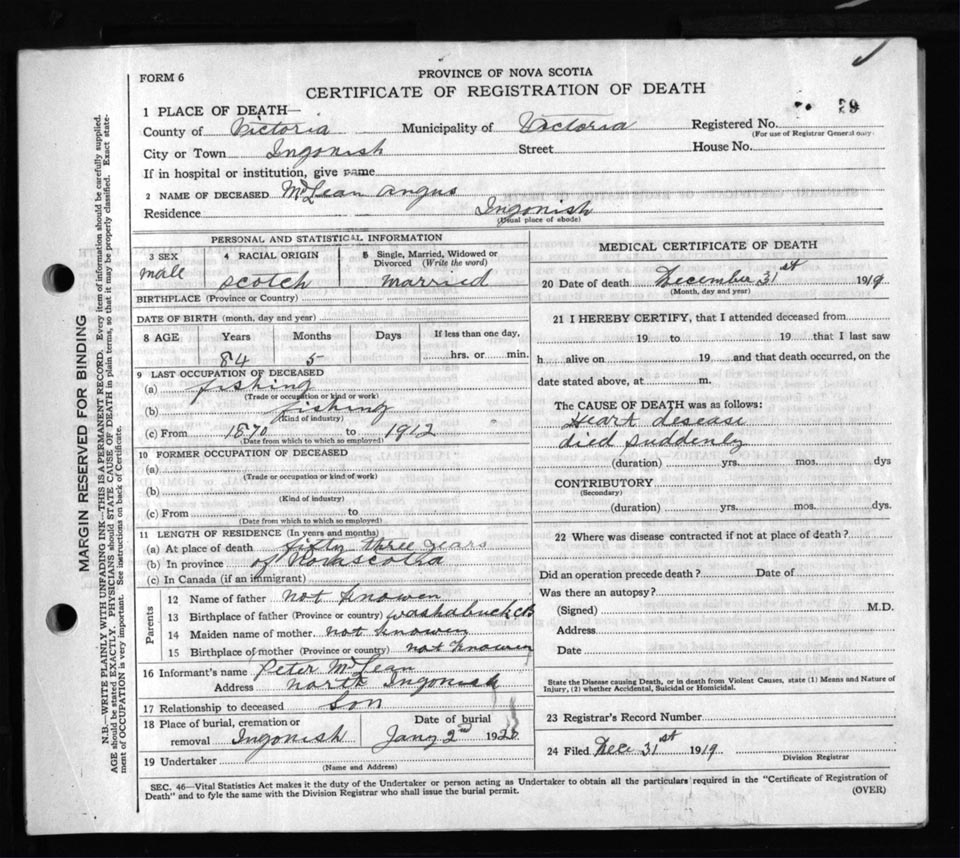 FORM 6
PROVINCE OF NOVA SCOTIA
CERTIFICATE OF REGISTRATION OF DEATH
29
1 PLACE OF DEATH—
County of Victoria Municipality of Victoria Registered No.
(For use of Registrar General only.)
City or Town Ingonish Street House No.
If in hospital or institution, give name
2 NAME OF DECEASED McLean Angus
Residence Ingonish
(Usual place of abode)
PERSONAL AND STATISTICAL INFORMATION
3 SEX 4 RACIAL ORIGIN 5 Single, Married, Widowed or Divorced (Write the word)
male scotch married
BIRTHPLACE (Province or Country)
DATE OF BIRTH (month, day and year)
8 AGE Years Months Days If less than one day,
84 5 hrs. or min.
9 LAST OCCUPATION OF DECEASED
(a) fishing
(Trade or occupation or kind or work)
(b) fishing
(Kind of industry)
(c) From 1870 to 1912
(Date from which to which so employed)
10 FORMER OCCUPATION OF DECEASED
(a)
(Trade or occupation or kind of work)
(b)
(Kind of industry)
(c) From to
(Date from which to which so employed)
11 LENGTH OF RESIDENCE (In years and months)
(a) At place of death fifty three years
(b) In province of Novascotia
(c) In Canada (if an immigrant)
Parents
12 Name of father not knowen
13 Birthplace of father (Province or country) washabuck CB
14 Maiden name of mother not knowen
15 Birthplace of mother (Province or country) not knowen
16 Informant's name Peter McLean
Address north Ingonish
17 Relationship to deceased Son
18 Place of burial, cremation or removal Ingonish Date of burial Jany 2nd 1920
19 Undertaker
(Name and Address)
MEDICAL CERTIFICATE OF DEATH
20 Date of death December 31st 1919
(Month, day and year)
21 I HEREBY CERTIFY, that I attended deceased from
19 to 19 that I last saw
h alive on 19 and that death occurred, on the
date stated above, at m.
The CAUSE OF DEATH was as follows:
Heart desease
died suddenly
(duration) yrs. mos. dys
CONTRIBUTORY
(Secondary)
(duration) yrs. mos. dys.
22 Where was disease contracted if not at place of death?
Did an operation precede death? Date of
Was there an autopsy?
(Signed) M.D.
Address
Date
State the Disease causing Death, or in death from Violent Causes, state (1) Means and Nature of
Injury, (2) whether Accidental, Suicidal or Homicidal.
23 Registrar's Record Number
24 Filed Dec 31st 1919
Division Registrar
SEC. 46—Vital Statistics Act makes it the duty of the Undertaker or person acting as Undertaker to obtain all the particulars required in the "Certificate of Registration of
Death" and to fyle the same with the Division Registrar who shall issue the burial permit. (OVER)
MARGIN RESERVED FOR BINDING
N.B.—WRITE PLAINLY WITH UNFADING INK—THIS IS A PERMANENT RECORD. Every item of information should be carefully supplied.
AGE should be stated EXACTLY. PHYSICIANS should STATE CAUSE OF DEATH in plain terms, so that it may be properly classified. Exact state-
ment of OCCUPATION is very important. See instructions on back of Certificate.